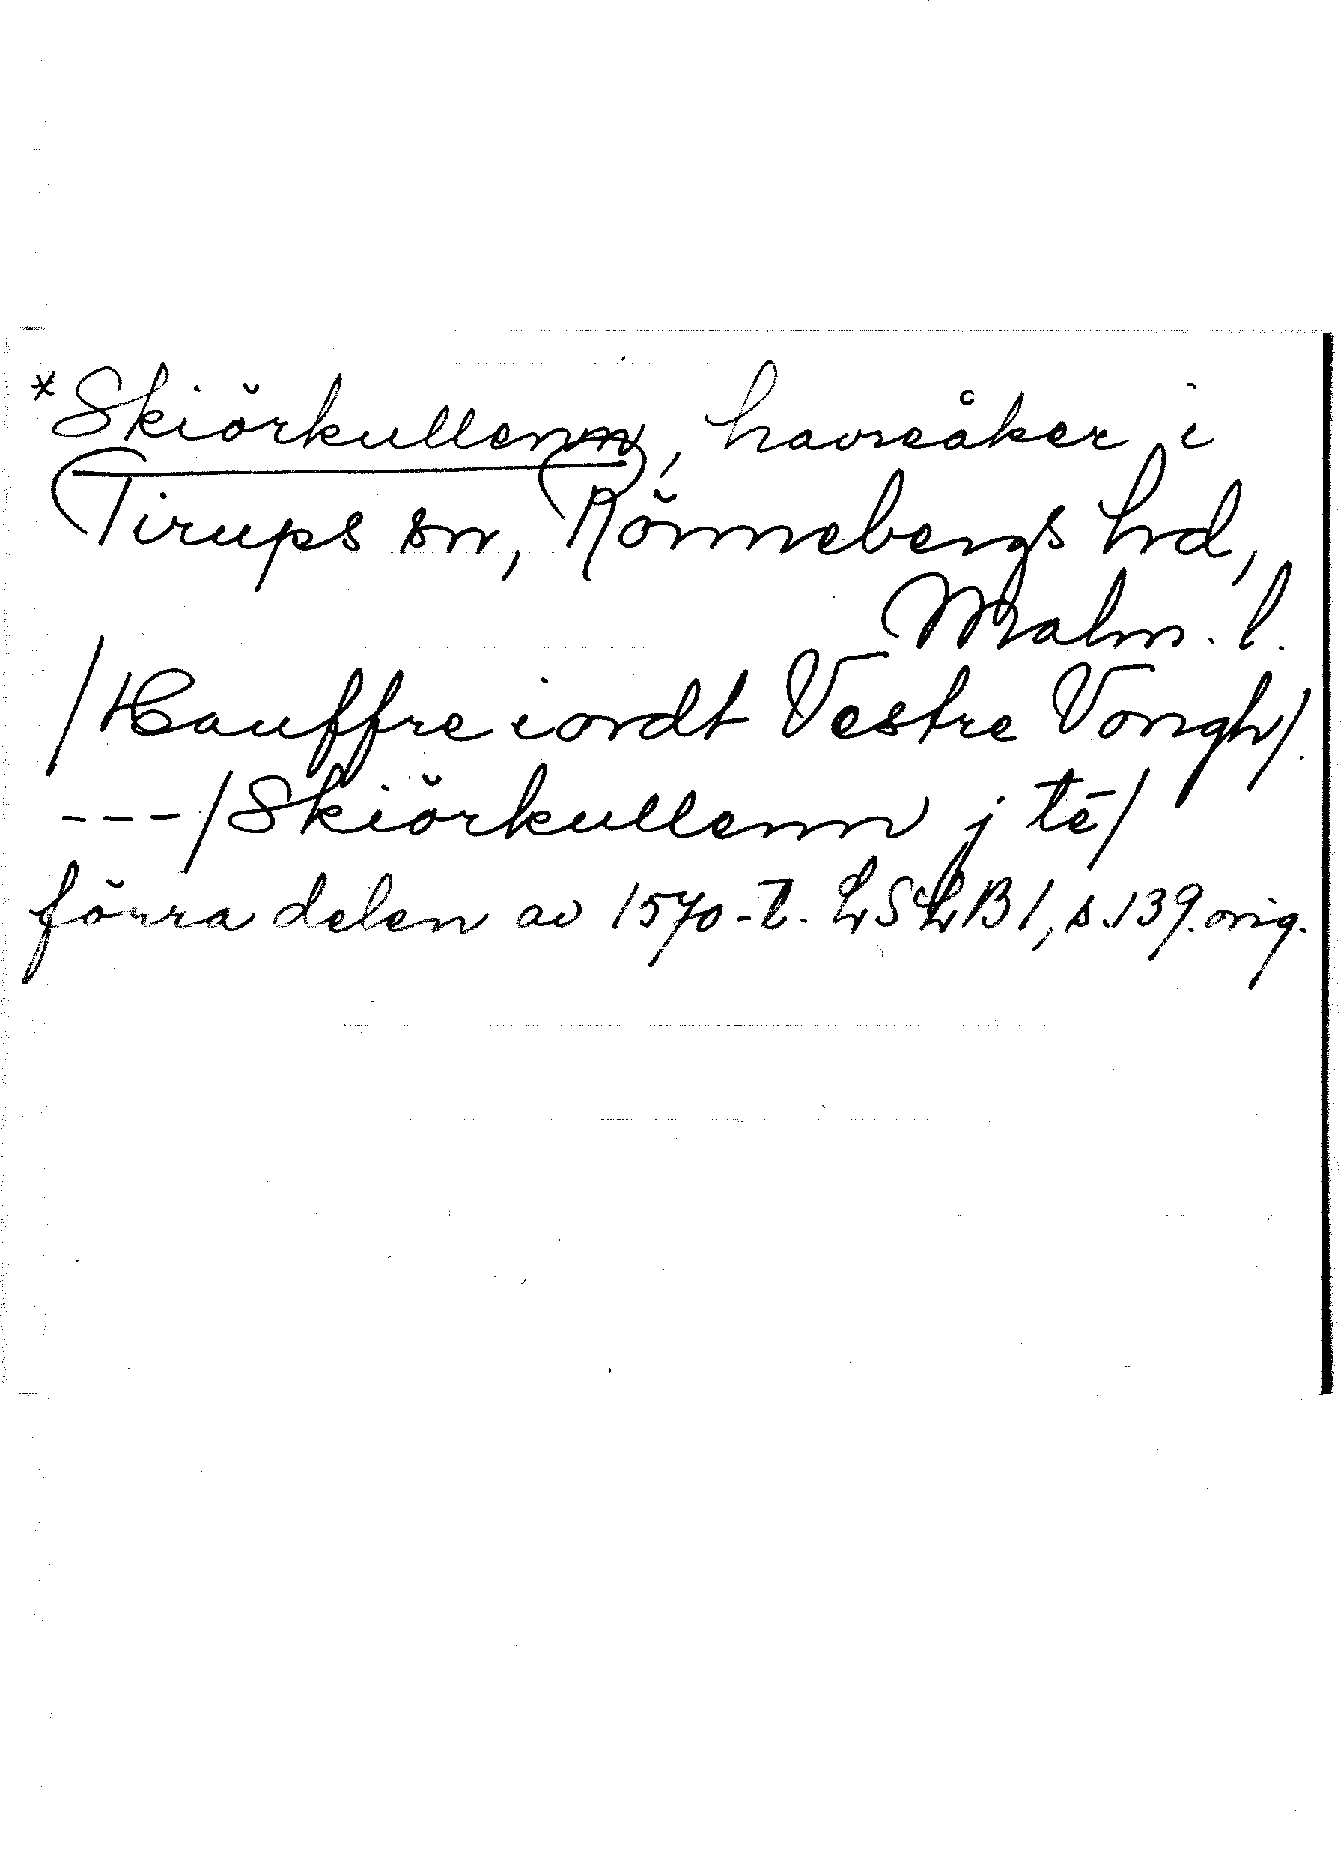 *Skiörkullenn, havreåker i
Tirups sn, Rönnebergs hrd,
Malm. l.
/Hauffre iordt Vestre Vongh/
---/Skiörkullenn j tē/
förra delen av 1570-t. LSLB 1, s. 139. orig.